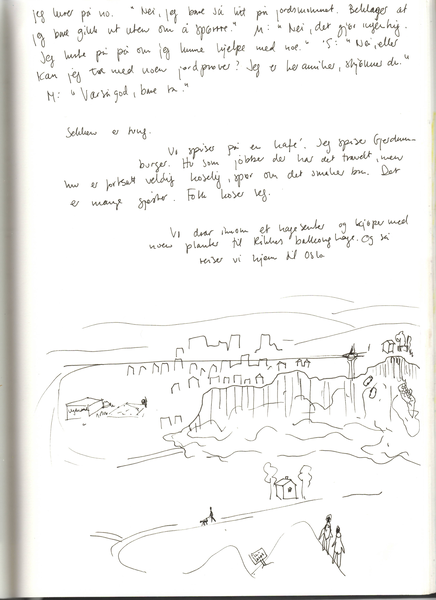 jeg lurer på no. "Nei, jeg bare så litt på jordsmonnet. Beklager at
jeg bare gikk ut uten om å spørre." M: "Nei, det gjør ingenting.
Jeg lurte på om jeg kunne hjelpe med noe." S: "Nå, eller
kan jeg ta med noen jordprøver? Jeg er keramiker, skjønner du."
M: "Værsågod, bare ta."
Sekken er tung.
Vi spiser på en kafé. Jeg spiser Gjerdrum-
burger. Hu som jobber der har det travelt, men
hun er fortsatt veldig koselig, spør om det smaker bra. Det
er mange gjester. Folk koser seg.
Vi drar innom et hagesenter og kjøper med
noen planter til Rikkes balkonghage. Og så
reiser vi hjem til Oslo